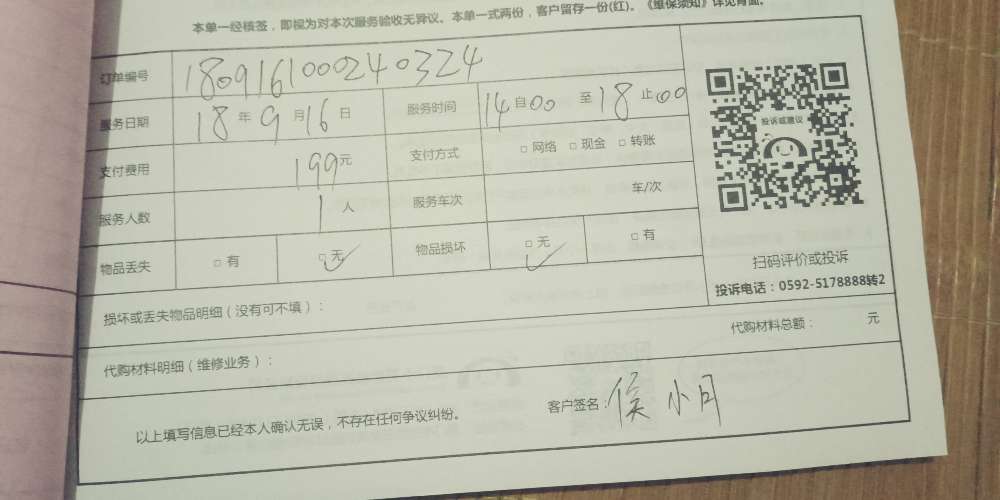 本单一经核签，即视为对本次服务验收无异议。本单一式两份，客户留存一份(红)。《维保须知》详见背面。
订单编号 180916100024 0324
服务日期 18 年 9 月 16 日 服务时间 14 自 00 至 18 止 00
支付费用 199 元 支付方式 □ 网络 □ 现金 □ 转账
服务人数 1 人 服务车次 车/次
物品丢失 □ 有 □ 无 ✓ 物品损坏 □ 无 ✓ □ 有
投诉或建议
扫码评价或投诉
投诉电话：0592-5178888转2
损坏或丢失物品明细（没有可不填）：
代购材料明细（维修业务）： 代购材料总额： 元
以上填写信息已经本人确认无误，不存在任何争议纠纷。 客户签名：侯小月